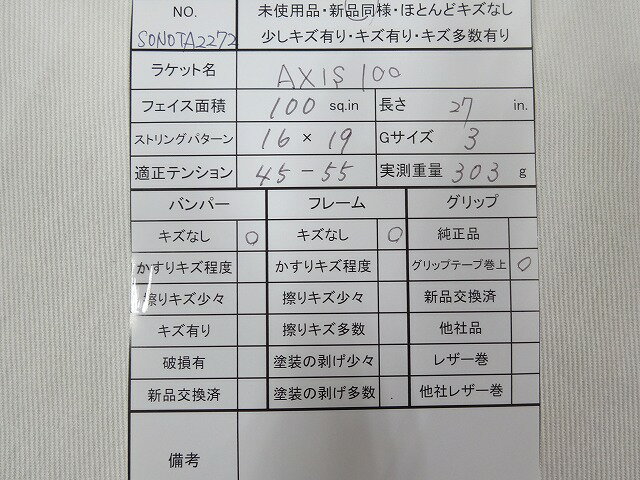 NO. 未使用品・新品同様・ほとんどキズなし
SONOTA2272 少しキズ有り・キズ有り・キズ多数有り
ラケット名 AXIS 100
フェイス面積 100 sq.in 長さ 27 in.
ストリングパターン 16 × 19 Gサイズ 3
適正テンション 45-55 実測重量 303 g
バンパー フレーム グリップ
キズなし ○ キズなし ○ 純正品
かすりキズ程度 かすりキズ程度 グリップテープ巻上 ○
擦りキズ少々 擦りキズ少々 新品交換済
キズ有り 擦りキズ多数 他社品
破損有 塗装の剥げ少々 レザー巻
新品交換済 塗装の剥げ多数 他社レザー巻
備考